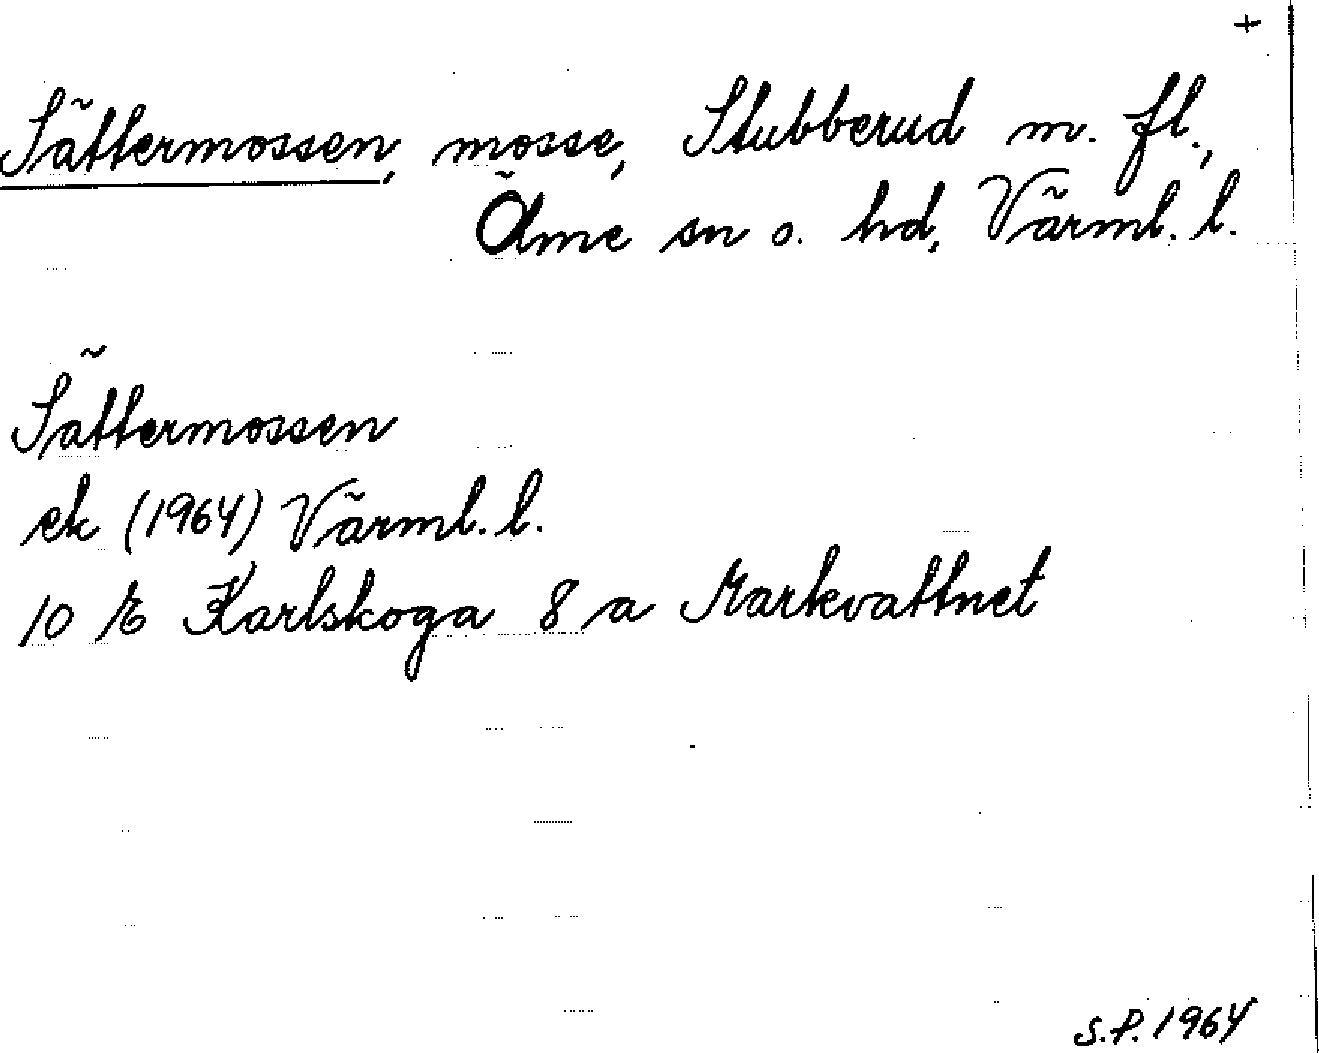 +
Sättermossen, mosse, Stubberud m. fl.,
Ölme sn o. hd, Värml. l.
Sättermossen
ek (1964) Värml. l.
10 E Karlskoga 8 a Markvattnet
S.P. 1964